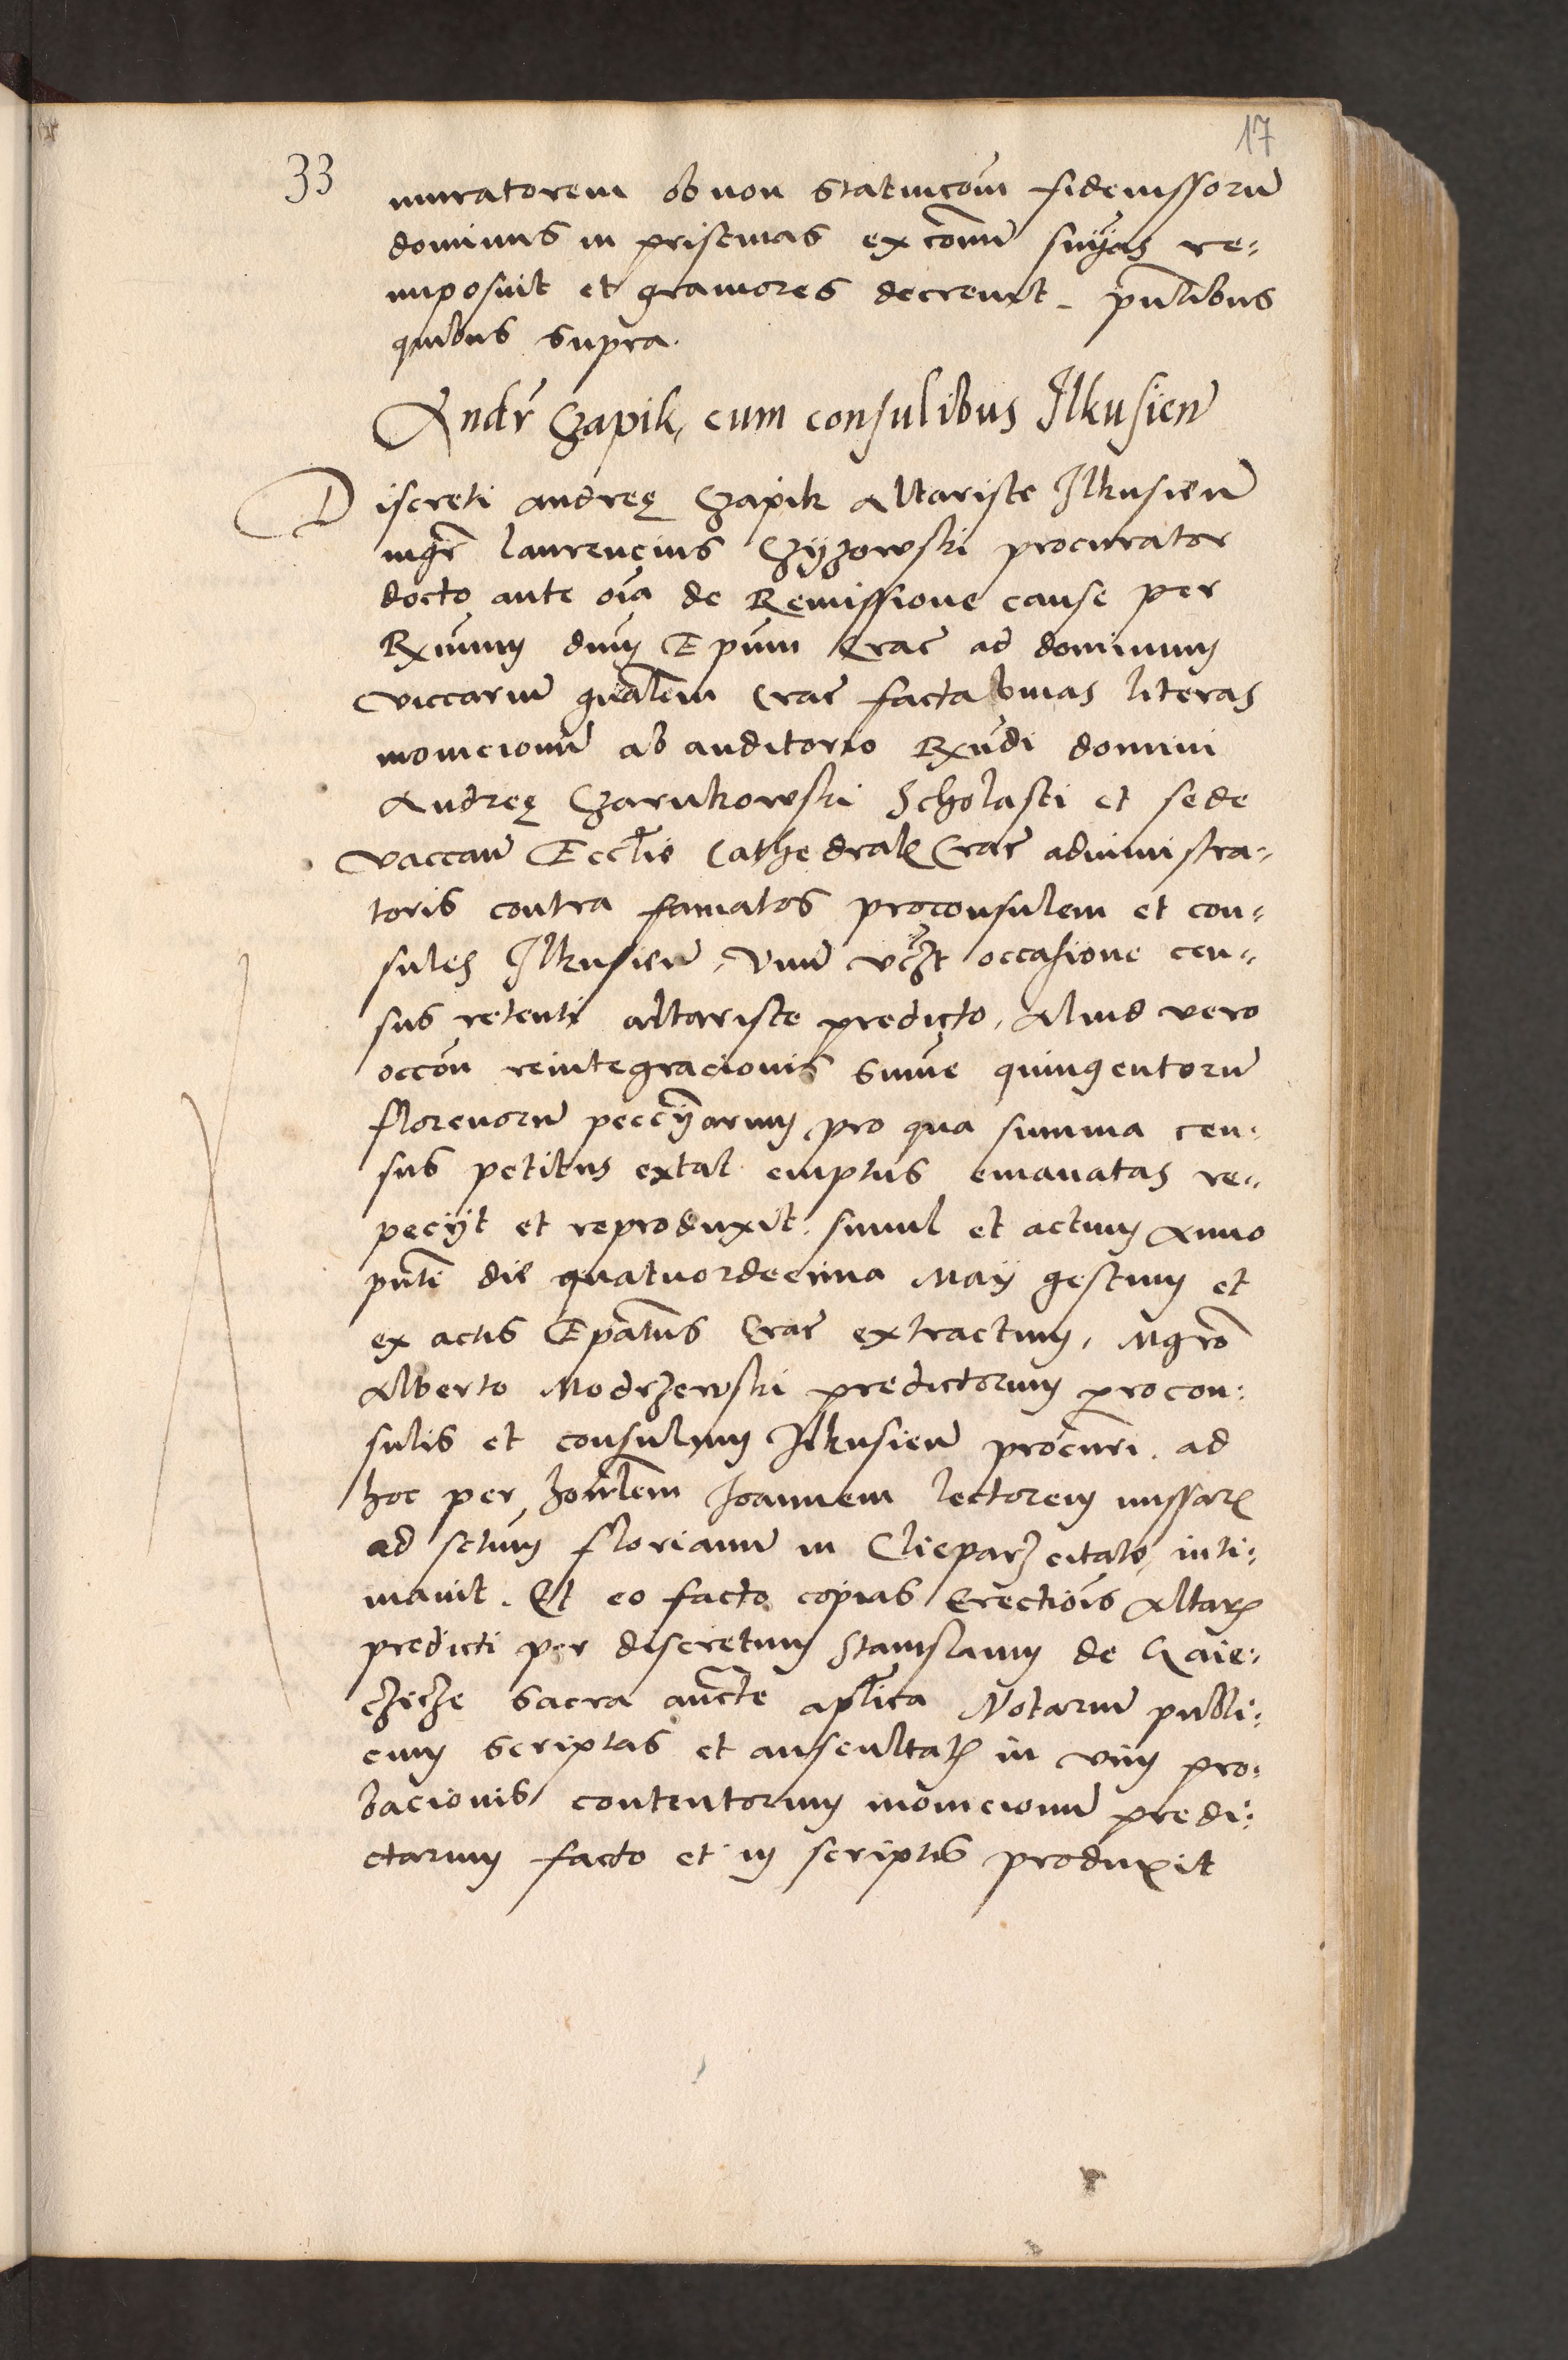 17
33
muratorem ob non statuicõm fideiussorũ
dominus in pristinas excõmũ suijas re=
imposuit et grauiores decreuit. pñtibus
quibus supra.
Andr̃ Czapik, cum consulibus Ilkusieñ
Discreti Andreę Czapik Altariste Ilkusieñ
mgr̃ Laurencius Czÿzowski procurator
docto ante oĩa de Remissione cause per
Rx̃mum dñm Ep̃um Crac̃ ad dominum
viccariũ gñalem Crac̃ facta binas literas
monicionũ ab auditorio Rx̃ndi domini
Andreę Czarnkowski Scholasti et sede
vaccañ Eccl̃ie Cathedral Crac̃ administra=
toris contra famatos proconsulem et con=
sules Ilkusieñ, Vnũ vcz̃t occasione cen=
sus retenti altariste predicto, Aliud vero
occõn reintegracionis sum̃e quingentorũ
florenorũ peccỹarum, pro qua summa cen=
sus petitus extat emptus emanatas re=
pecijt et reproduxit, simul et actum Anno
pñti die quatuordecima Maij gestum et
ex actis Ep̃atus Crac̃ extractum, Mgrõ
Alberto Modrzewski predictorum procon=
sulis et consulum Ilkusieñ procuri. ad
hoc per hon̄lem Ioannem lectorem missar
ad sctũm florianũ in Clieparz citato, inti=
mauit. Et eo facto copias Erectiõis Altar
predicti per discretum Stanislaum de Xaie=
chzicze sacra aũcte aplĩca Notariũ publi=
cum scriptas et auscultat in vim pro=
bacionis contentorum monicionũ predi=
ctarum facto et in scriptis produxit